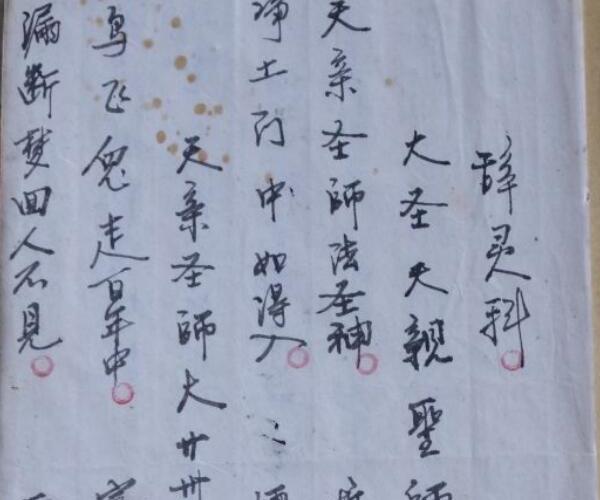 辞灵科
大圣天親聖師
天亲圣师法圣神
净土门中如得入
天亲圣师大廿卅
鸟飞兔走百年中
漏断梦回人不見